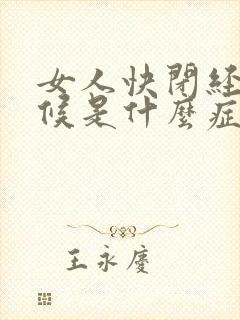 女人快閉経
候是什麽症
王永慶